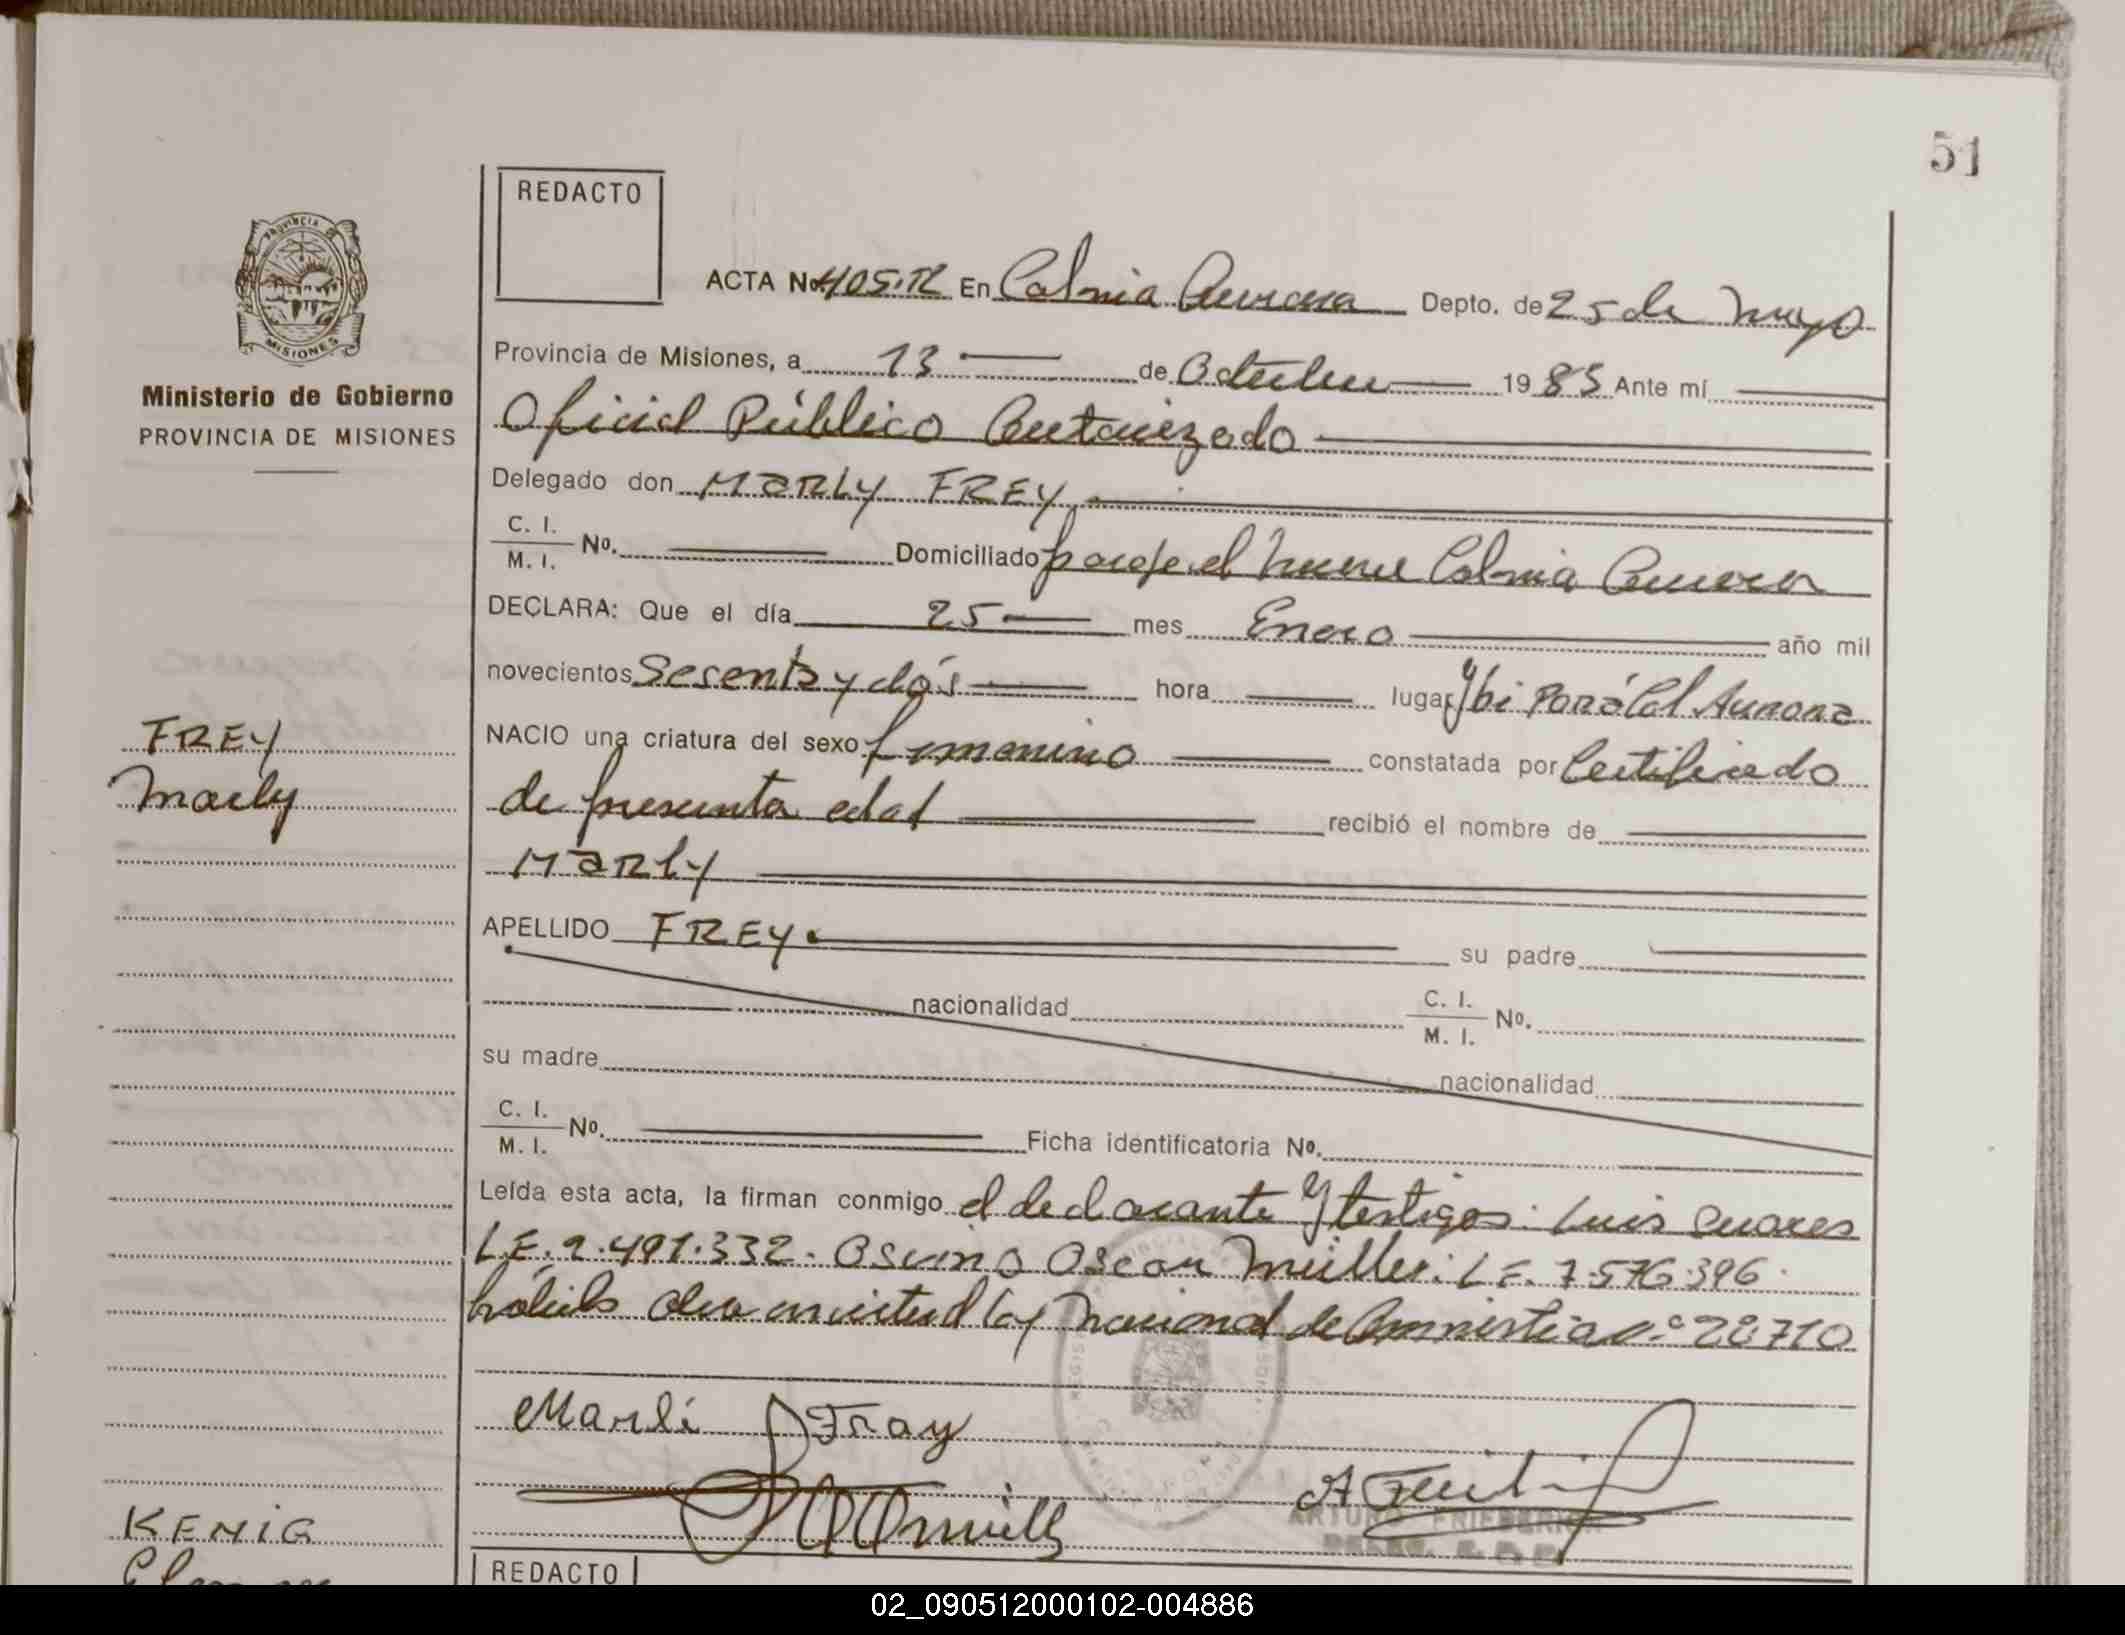 51
REDACTO
ACTA No. 405.TR En Colonia Aurora Depto. de 25 de Mayo
Provincia de Misiones, a 13 de Octubre 1985 Ante mí
Ministerio de Gobierno
PROVINCIA DE MISIONES
Oficial Público Autorizado
Delegado don MARLY FREY
C. I.
M. I. No. Domiciliado paraje el Colonia Aurora
DECLARA: Que el día 25 mes Enero año mil
novecientos Sesenta y dós hora lugar Ybi Pora Col Aurora
FREY
Marly
NACIO una criatura del sexo femenino constatada por Certificado
de presunta edad recibió el nombre de
Marly
APELLIDO FREY su padre
nacionalidad C. I.
M. I. No.
su madre nacionalidad
C. I.
M. I. No. Ficha identificatoria No.
Leída esta acta, la firman conmigo el declarante y testigos: Luis Suares
L.E. 2.491.332. Oscar Müller. L.E. 7.576.396.
ley Nacional de Amnistia n.º
Marli Fray
MISIONES
ARTURO FRIEDERICH
KENIG
REDACTO
02_090512000102-004886